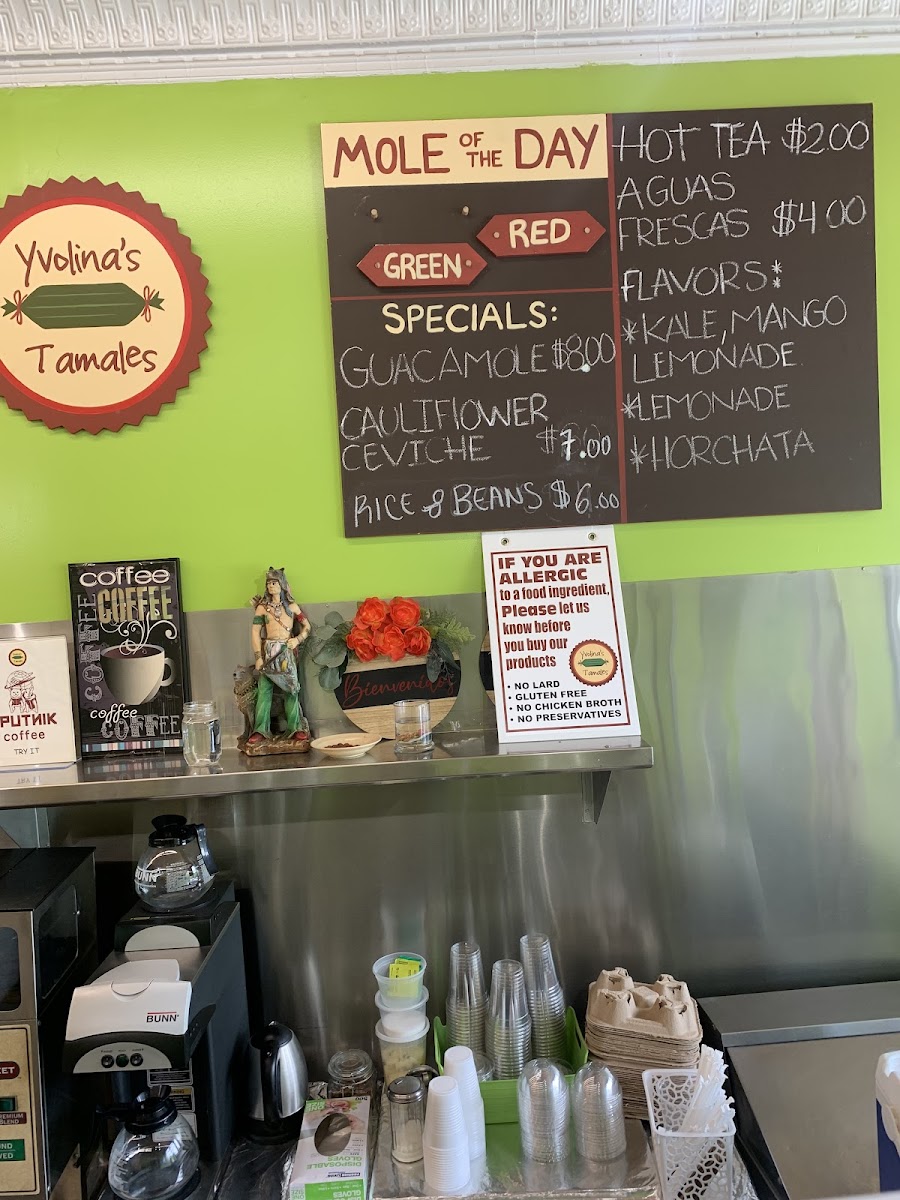 Yvolina's
Tamales
MOLE OF THE DAY
RED
GREEN
SPECIALS:
GUACAMOLE $8.00
CAULIFLOWER
CEVICHE $7.00
RICE & BEANS $6.00
HOT TEA $2.00
AGUAS
FRESCAS $4.00
FLAVORS*
*KALE, MANGO
LEMONADE
*LEMONADE
*HORCHATA
IF YOU ARE
ALLERGIC
to a food ingredient,
Please let us
know before
you buy our
products
Yvolina's
Tamales
• NO LARD
• GLUTEN FREE
• NO CHICKEN BROTH
• NO PRESERVATIVES
coffee
COFFEE
COFFEE
COFFEE
coffee
COFFEE
Bienvenidos
PUTNIK
coffee
TRY IT
BUNN
BUNN
DISPOSABLE
GLOVES